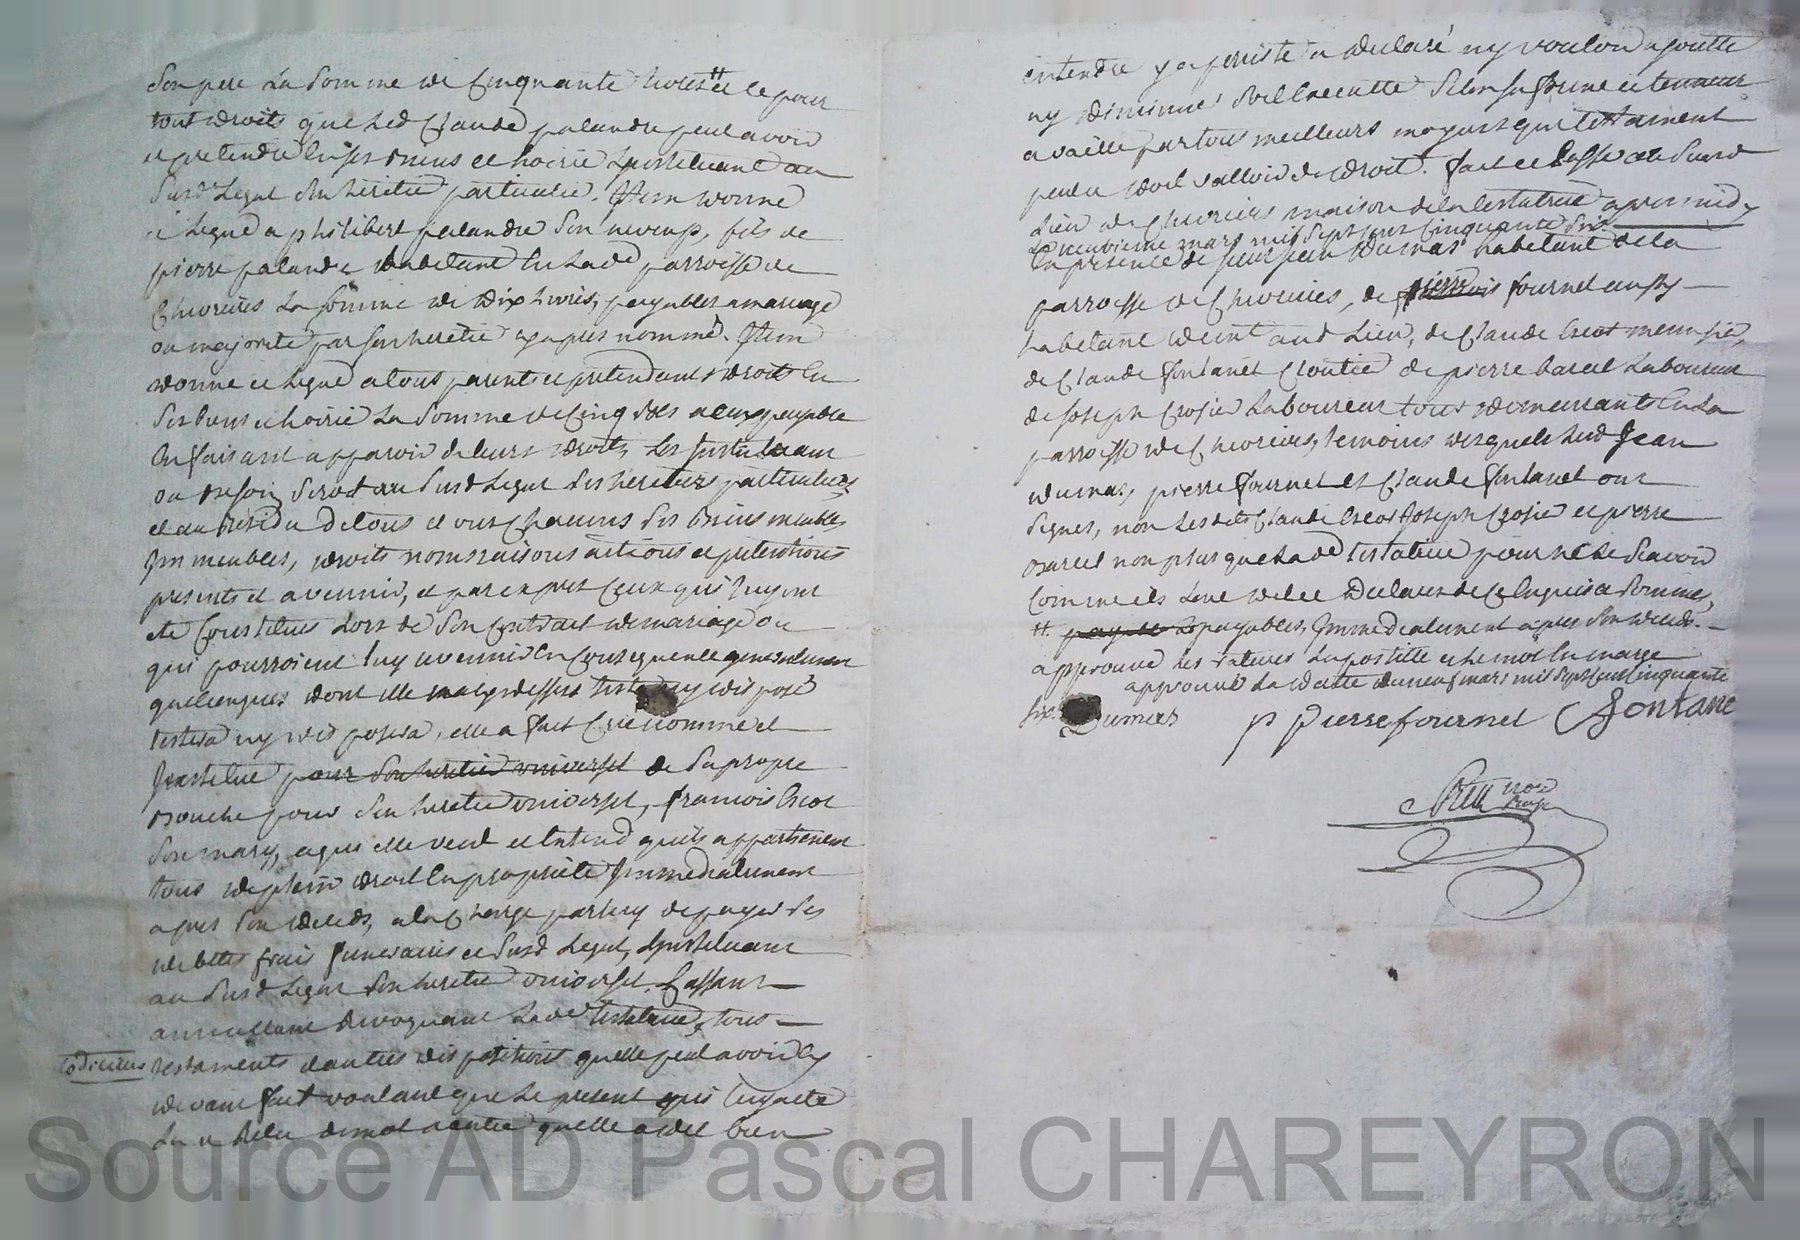 Son pere La Somme de Cinquante livres # et ce pour
tout droits que led Claude palandre peut avoir
et pretendre En ses biens et hoirie Linstituant au
Susd Legat Son heritier particulier. Item donne
et Legue a philibert palandre Son neveu, fils de
pierre palandre habitant En Lade parroisse de
Chevrieres La somme de Dix livres, payables a mariage
ou majorité par Son heretier cy apres nommé. Item
donne et Legue a tous parents et pretendants droits En
Ses biens et hoirie La Somme de Cinq Sols a eux payable
En faisant apparoir de leurs droits, Les Instituant
ou besoin Seroit au Susd Legat Ses heretiers particuliers
et au Residu de tous et uns Chacuns Ses biens meubles
Immeubles, droits noms raisons actions et pretentions
presents et avennir, et par expres Ceux qui luy ont
eté Constitués Lors de Son Contrait de mariage ou
qui pourroient luy avennir En Consequence generalement
quelconques dont elle na cy dessus testé ny disposé
testera ny disposera, elle a fait Créé nommé et
Institué pour Son heretier universel de Sa propre
bouche pour Son heretier universel, francois Escot
Son mary, a qui elle veut et Entend quils appartienent
tous de plein droit En proprieté Immediatement
apres Son deceds, a la Charge par luy de payer Ses
debtes frais funeraires et Susd Legats, Linstituant
au Susd Legat Son heretier universel. Cassant
annullant Revoquant Lade testatrice, tous
Codicilles testaments et autres dispositions quelle peut avoir Cy
devant fait voulant que Le present qui luy a eté
Lu et Relu de mot a autre quelle a dit bien
entendre y a persisté a declaré ny vouloir ajoutter
ny diminuer Soit Executté Selon Sa forme et teneur
et vaille par tous meilleurs moyens que testament
peut et doit valloir de droit. fait et Passé au Susd
Lieu de Chevrieres maison de la testatrice apres midy
Le neuvieme mars mil Sept cent Cinquante Six.
En presence de Sieur Jean Dumas habitant de la
parroisse de Chevrieres, de pierre fournel aussy
habitant dud Lieu, de Claude Escot menusier,
de Claude fontanet Cloutier de pierre barcel Laboureur
de Joseph Crosier Laboureur tous demeurrants En La
parroisse de Chevrieres, temoins desquels Led Jean
dumas, pierre fournel et Claude fontanet ont
Signés, non Lesdits Claude Escot Joseph Crosier et pierre
barcel non plus que Lade testatrice pour ne Le Scavoir
Comme ils L'ont dit et declaré de Ce Enquis et Sommés,
#. payable Es payables, Immediatement apres Son deceds.
approuvé Les ratures Lapostille et Le mot En marge
approuvé La datte du neuf mars mil Sept Cent Cinquante
Six. Dumas p Pierre fournel C fontane